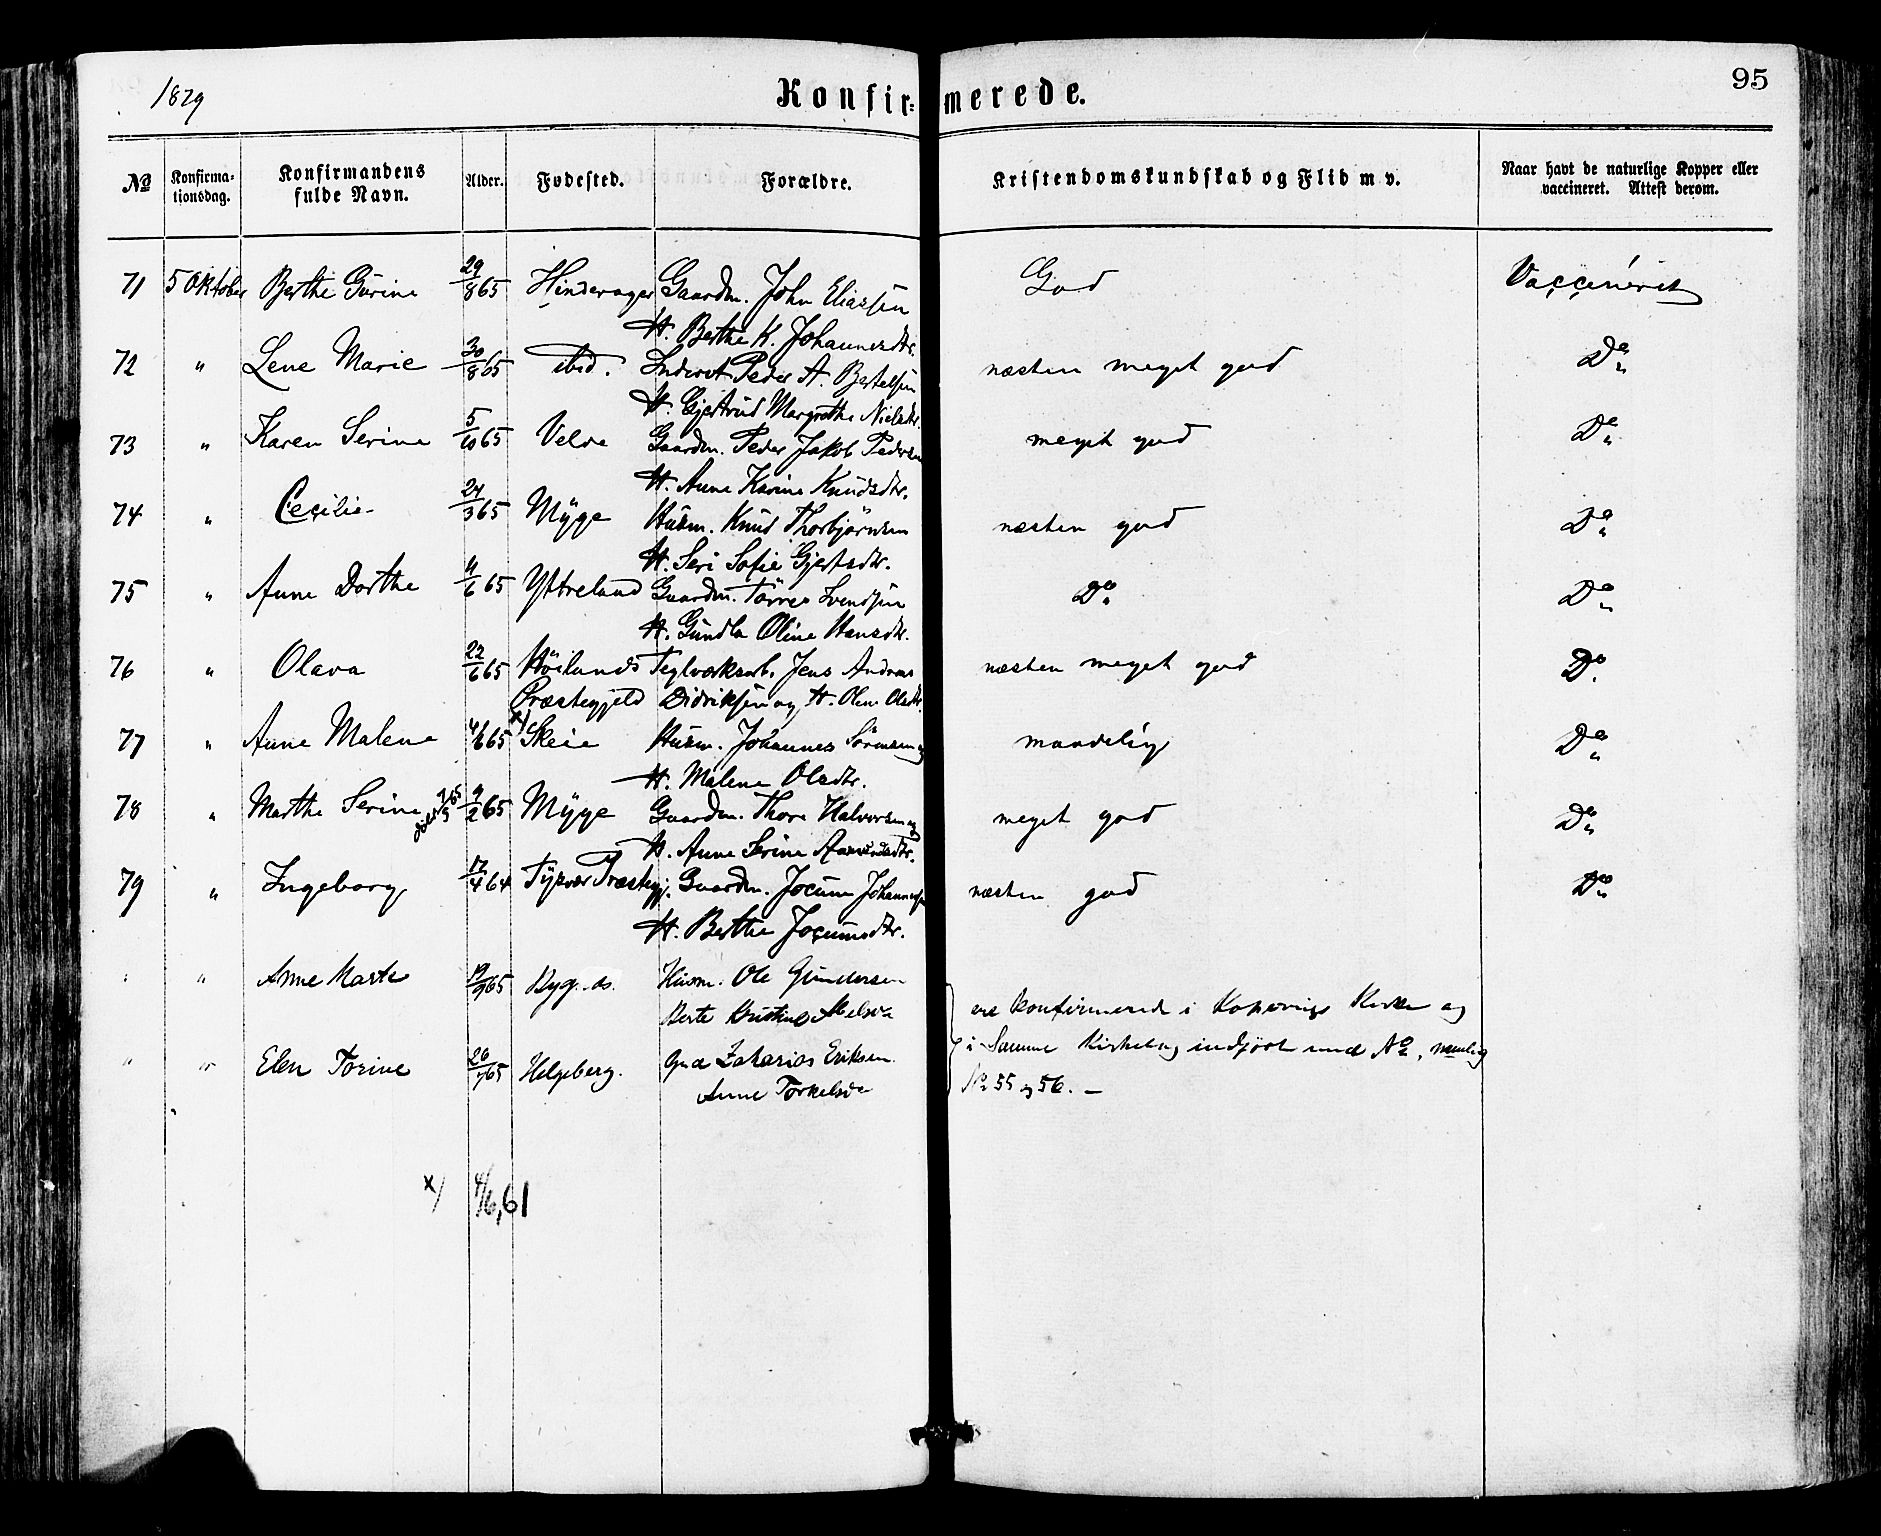 1879 Konfirmerede. 95
№ Konfirmationsdag. Konfirmandens fulde Navn. Alder. Fødested. Forældre. Kristendomskundskab og Flid m v. Naar havt de naturlige Kopper eller vaccineret. Attest derom.
71 5 Oktober Berthe Gurine 29/8 65 Hinderager Gaardm. John Eliassen God Vaccineret
H. Berthe K. Johannesdtr.
72 " Lene Marie 30/8 65 ibid. Inderst Peder A. Bertelsen næsten meget god Do
H. Gjertrud Margrethe Nielsdtr.
73 " Karen Serine 5/10 65 Velde Gaardm. Peder Jakob Pedersen meget god Do
H. Anne Karine Knudsdtr.
74 " Cecilie 24/3 65 Myge Husm. Knud Thorbjørnsen næsten god Do
H. Seri Sofie Gjertsdtr.
75 " Anne Dorthe 4/6 65 Yttreland Gaardm. Tørres Svendsen Do Do
H. Gundla Oline Hansdtr.
76 " Olava 22/6 65 Høilands Teglværksarb. Jens Andreas næsten meget god Do
Præstegjeld Didriksen og H. Olene Olsdtr.
77 " Anne Malene 4/6 65 x) Skeie Husm. Johannes Sørensen og maadelig Do
H. Malene Olsdtr.
78 " Marthe Serine 9/2 65 Myge Gaardm. Thore Halvorsen og meget god Do
H. Anne Serine
79 " Ingeborg 17/4 64 Tysvær Præstegj. Gaardm. Jocum Johannessen næsten god Do
H. Berthe Jocumsdtr.
" " Anne Marte 19/9 65 Bygnes. Husm. Ole Gundersen
Berte Kristine
ere konfirmerede i Kopervigs Kirke og
" " Elen Torine 26/7 65 Helgeberg. Gmd Zakarias Eriksen
i Samme Kirkebog indført med No, nemlig
Anne Torkelsdr
No 55 og 56. —
x) 4/6, 61